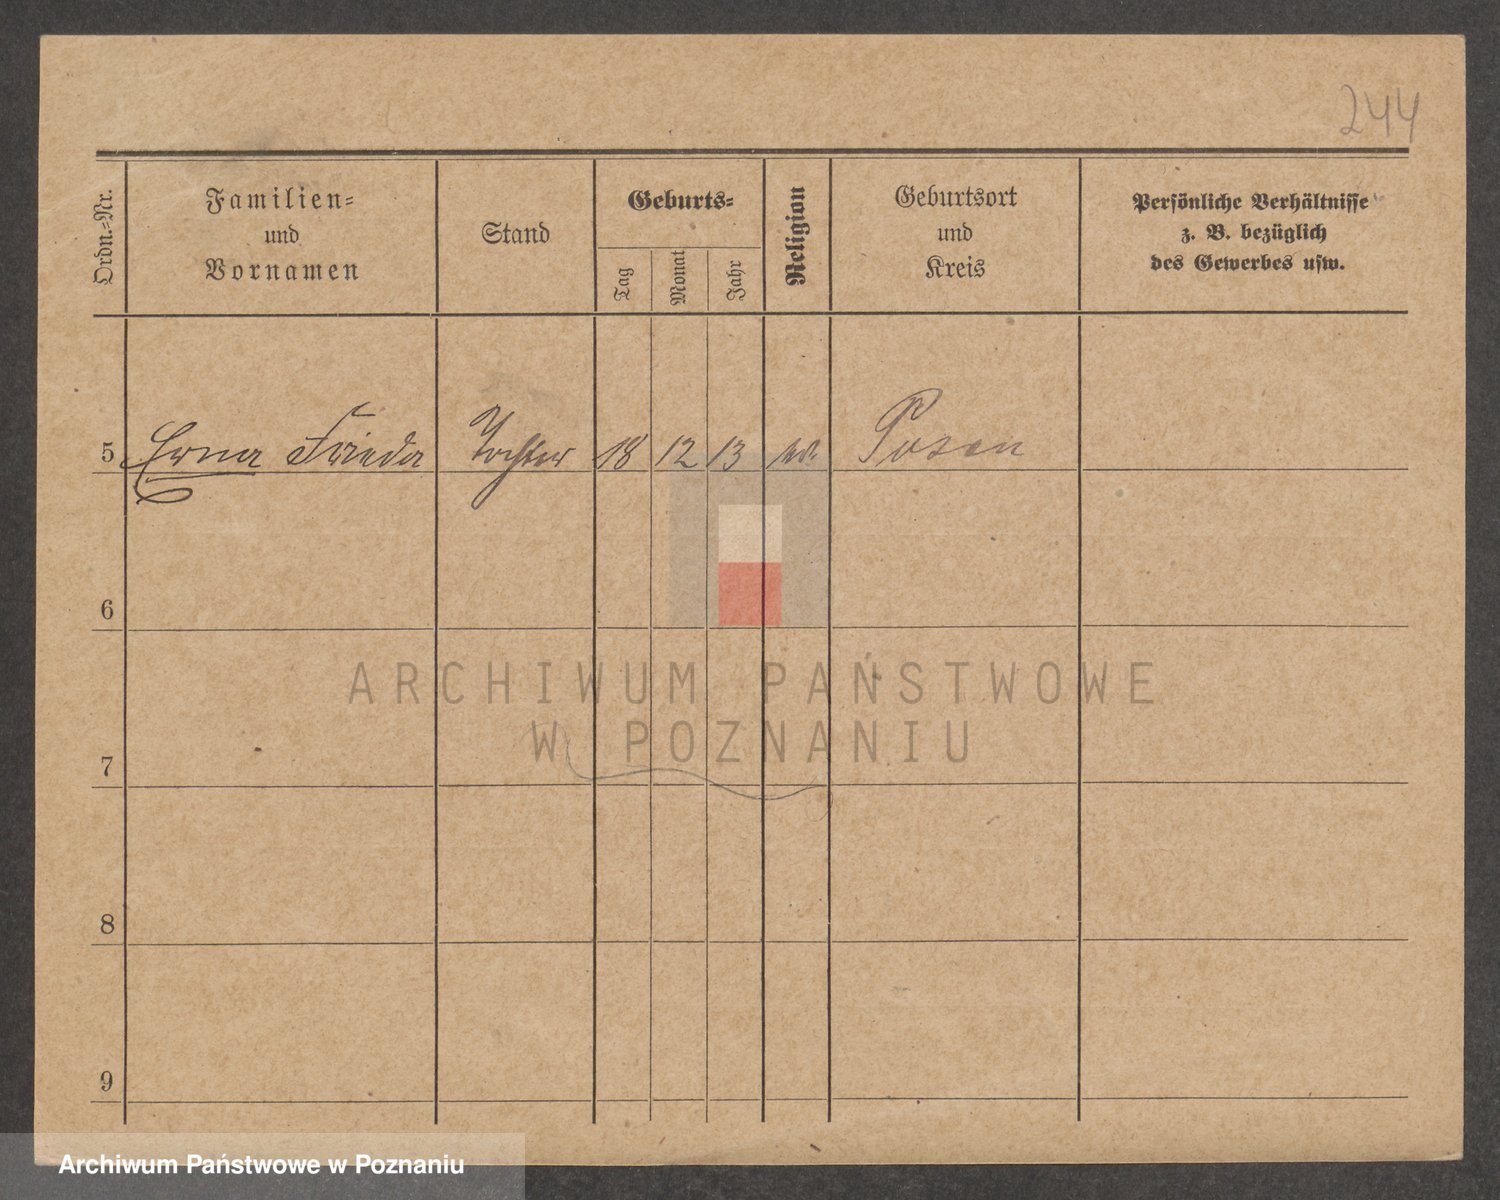 244
Ordn.-Nr.
Familien-
und
Vornamen
Stand
Geburts-
Tag
Monat
Jahr
Religion
Geburtsort
und
Kreis
Persönliche Verhältnisse
z. B. bezüglich
des Gewerbes usw.
5 Erna Frieda Tochter 18 12 13 Posen
6
7
8
9
ARCHIWUM PAŃSTWOWE
W POZNANIU
Archiwum Państwowe w Poznaniu